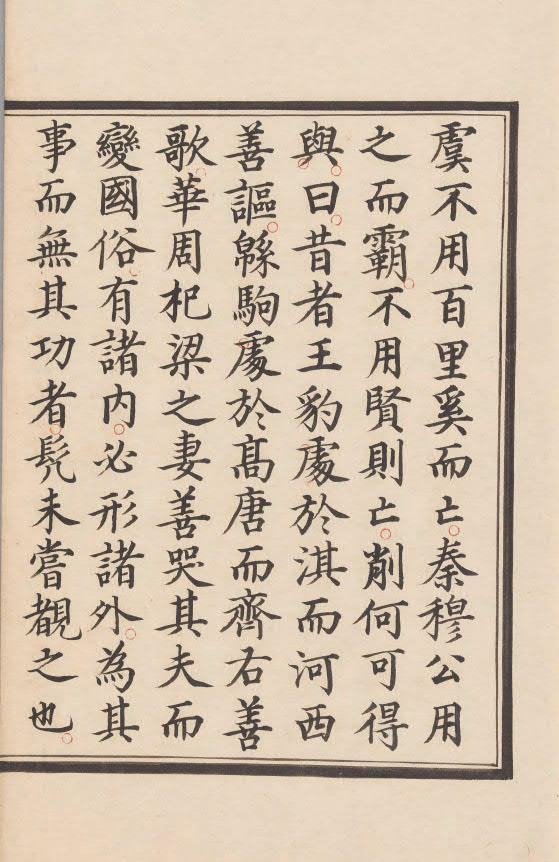 虞不用百里奚而亡秦穆公用
之而霸不用賢則亡削何可得
與曰昔者王豹處於淇而河西
善謳緜駒處於高唐而齊右善
歌華周杞梁之妻善哭其夫而
變國俗有諸內必形諸外為其
事而無其功者髡未嘗覩之也